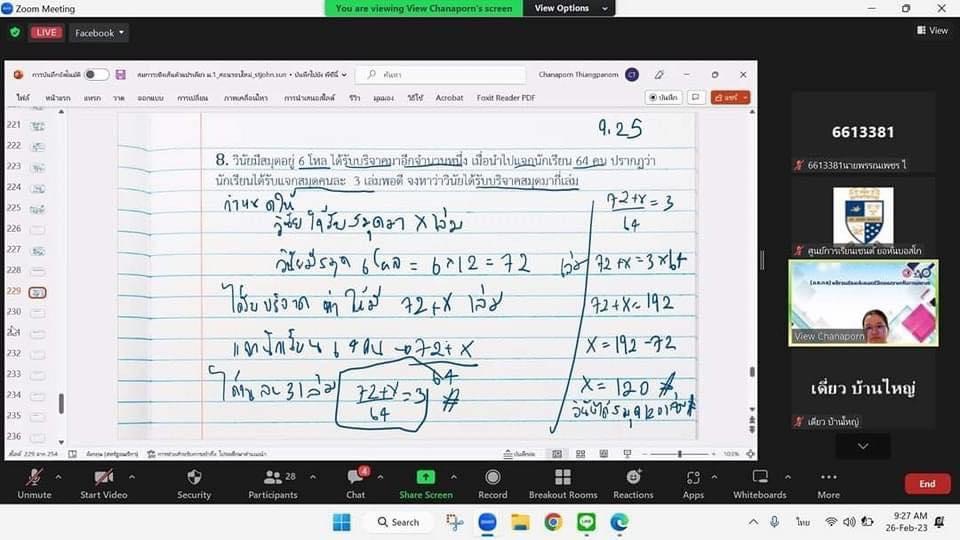 Zoom Meeting
You are viewing View Chanaporn's screen
View Options
LIVE
Facebook
View
การบันทึกอัตโนมัติ
ค้นหา
Chanaporn Thiangpanom
CT
ไฟล์ หน้าแรก แทรก วาด ออกแบบ การเปลี่ยน ภาพเคลื่อนไหว การนำเสนอสไลด์ รีวิว มุมมอง วิธีใช้ Acrobat Foxit Reader PDF
บันทึก
แชร์
221
222
223
224
225
226
227
228
229
230
232
233
234
235
236
9.25
8. วินัยมีสมุดอยู่ 6 โหล ได้รับบริจาคมาอีกจำนวนหนึ่ง เมื่อนำไปแจกนักเรียน 64 คน ปรากฏว่า
นักเรียนได้รับแจกสมุดคนละ 3 เล่มพอดี จงหาว่าวินัยได้รับบริจาคสมุดมากี่เล่ม
กำหนดให้
วินัยได้รับสมุดมา x เล่ม
วินัยมีสมุด 6 โหล = 6×12 = 72 เล่ม
ได้รับบริจาค ทำให้มี 72+x เล่ม
แจกนักเรียน 64 คน → 72+x
64
ได้คนละ 3 เล่ม
72+x = 3
64
72+x = 3
64
72+x = 3×64
72+x = 192
x = 192-72
x = 120
6613381
6613381นายพรรณเพชร ไ
ศูนย์การเรียนเซนต์ ยอห์นบอสโก
View Chanaporn
เดี่ยว บ้านใหญ่
เดี่ยว บ้านใหญ่
สไลด์ 229 จาก 254
103%
Unmute
Start Video
Security
Participants
28
Chat
4
Share Screen
Record
Breakout Rooms
Reactions
Apps
Whiteboards
More
End
Search
ไทย
9:27 AM
26-Feb-23